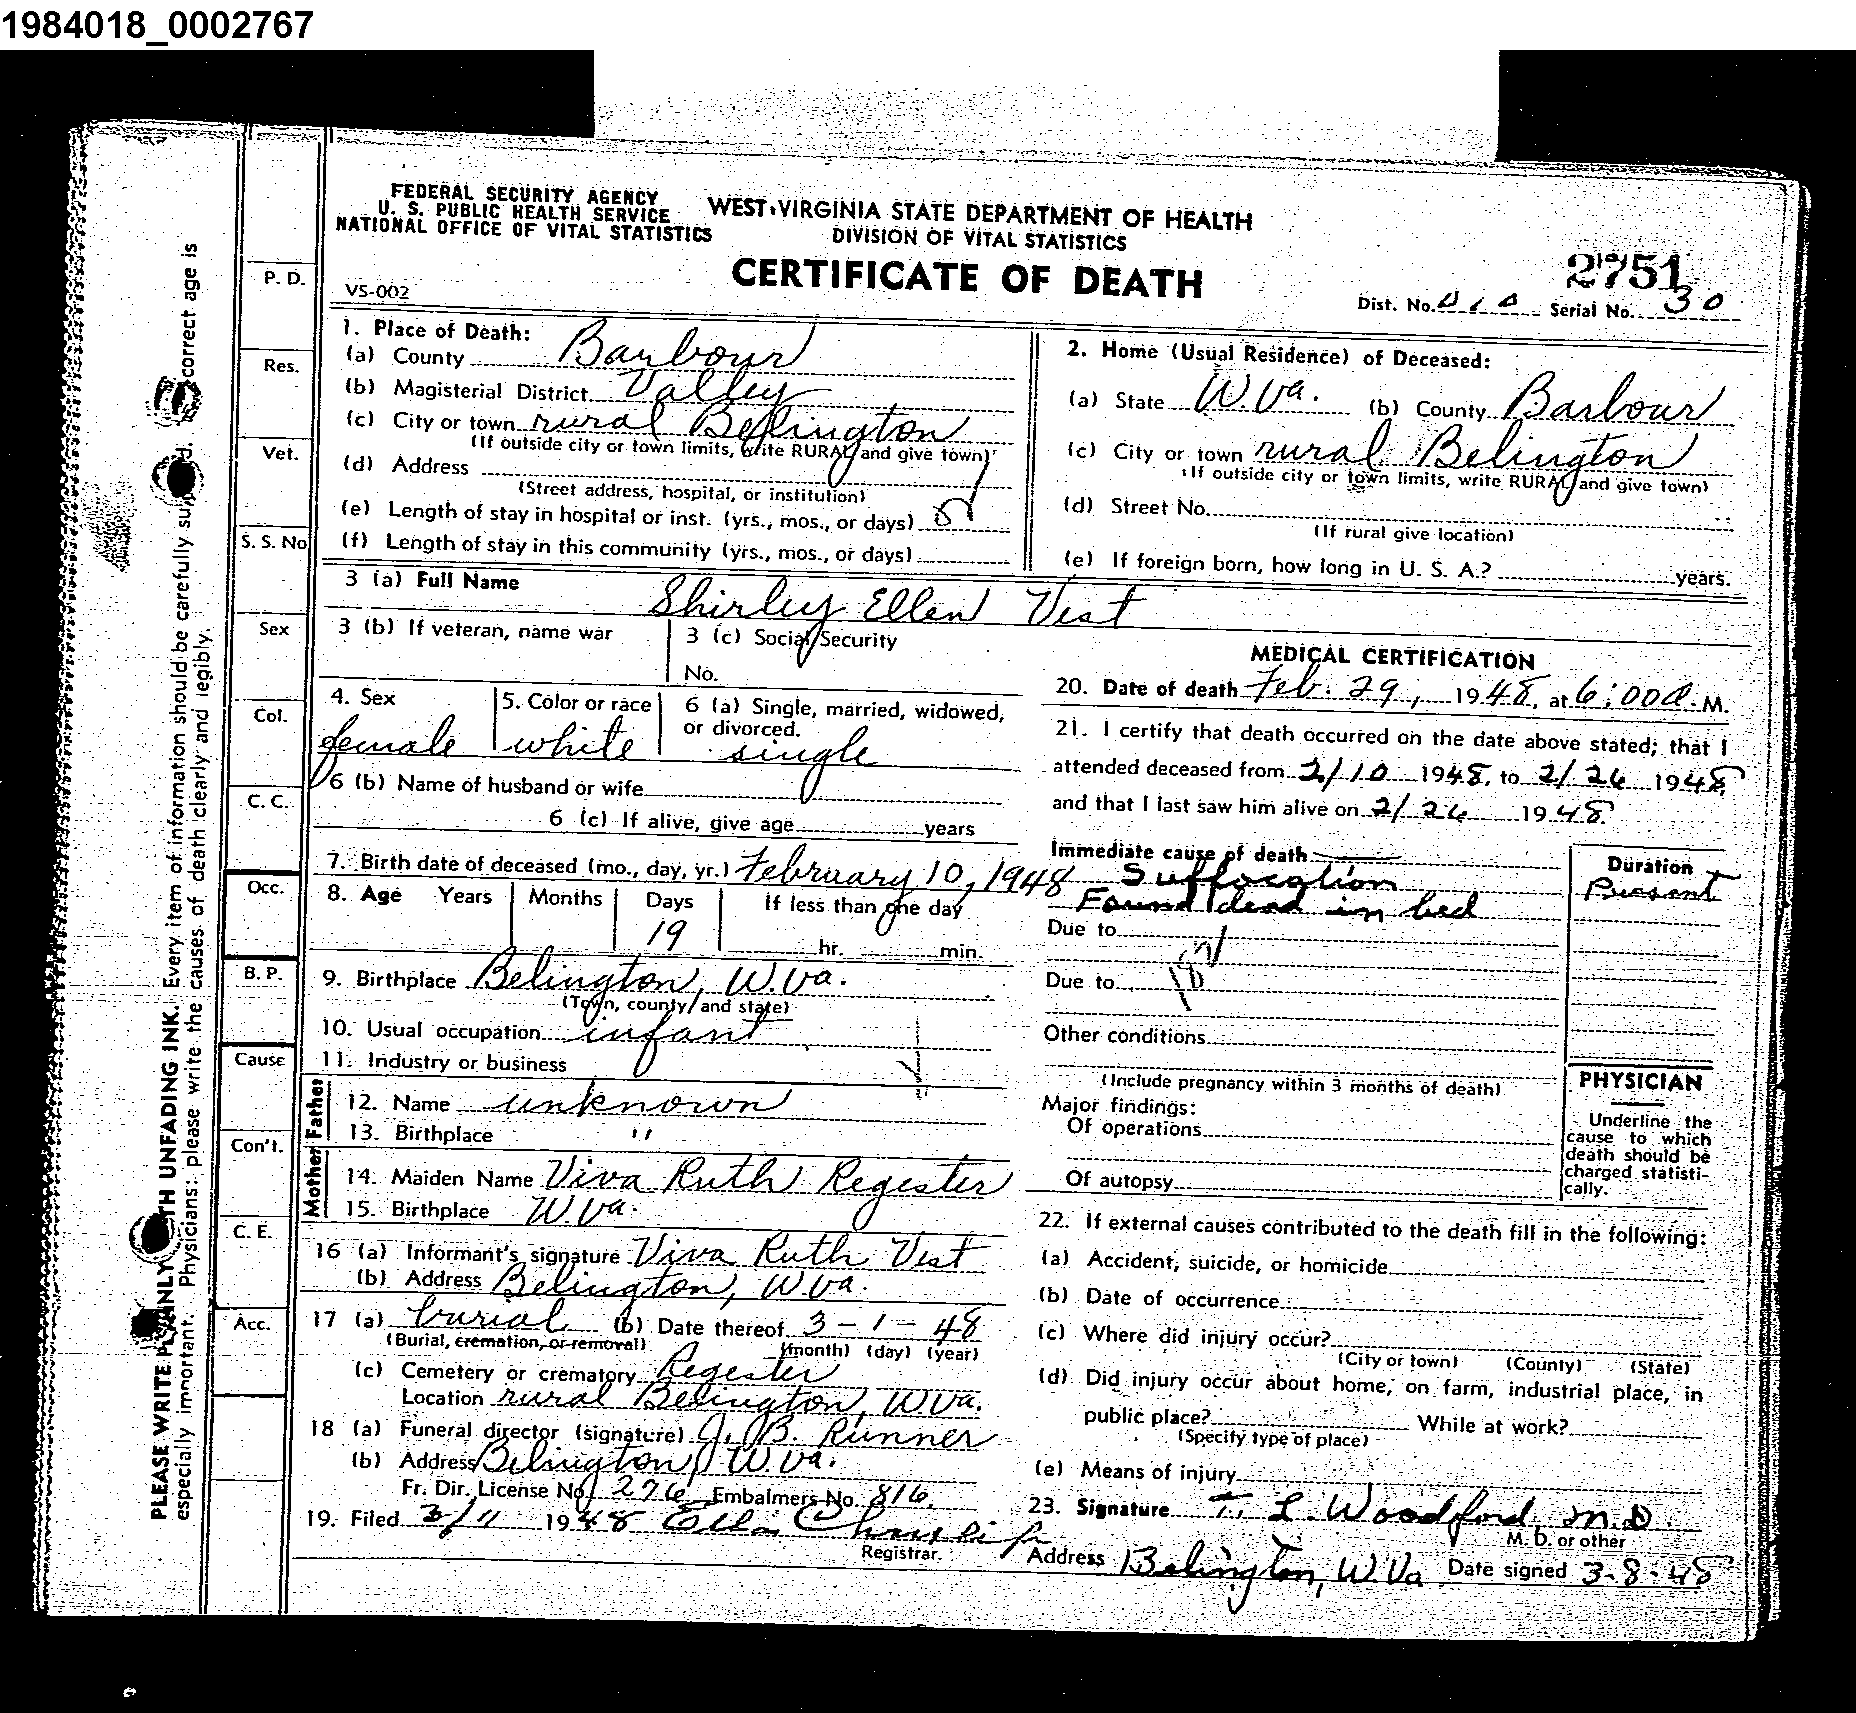 1984018_0002767
FEDERAL SECURITY AGENCY
U. S. PUBLIC HEALTH SERVICE
NATIONAL OFFICE OF VITAL STATISTICS
WEST VIRGINIA STATE DEPARTMENT OF HEALTH
DIVISION OF VITAL STATISTICS
CERTIFICATE OF DEATH
2751
VS-002
Dist. No. Serial No. 30
1. Place of Death:
(a) County Barbour
(b) Magisterial District Valley
(c) City or town rural Belington
(If outside city or town limits, write RURAL and give town)
(d) Address
(Street address, hospital, or institution)
(e) Length of stay in hospital or inst. (yrs., mos., or days)
(f) Length of stay in this community (yrs., mos., or days)
2. Home (Usual Residence) of Deceased:
(a) State W.Va. (b) County Barbour
(c) City or town rural Belington
(If outside city or town limits, write RURAL and give town)
(d) Street No.
(If rural give location)
(e) If foreign born, how long in U. S. A.? years.
3 (a) Full Name Shirley Ellen Vest
3 (b) If veteran, name war
3 (c) Social Security
No.
4. Sex
female
5. Color or race
white
6 (a) Single, married, widowed,
or divorced.
single
6 (b) Name of husband or wife
6 (c) If alive, give age years
7. Birth date of deceased (mo., day, yr.) February 10, 1948
8. Age Years Months Days If less than one day
19 hr. min.
9. Birthplace Belington, W.Va.
(Town, county, and state)
10. Usual occupation infant
11. Industry or business
Father
12. Name unknown
13. Birthplace "
Mother
14. Maiden Name Viva Ruth Regester
15. Birthplace W.Va.
16 (a) Informant's signature Viva Ruth Vest
(b) Address Belington, W.Va.
17 (a) burial (b) Date thereof 3-1-48
(Burial, cremation, or removal) (month) (day) (year)
(c) Cemetery or crematory Regester
Location rural Belington, W.Va.
18 (a) Funeral director (signature) J. B. Runner
(b) Address Belington, W.Va.
Fr. Dir. License No. 276 Embalmers No. 816
19. Filed 3/11 1948
Registrar.
MEDICAL CERTIFICATION
20. Date of death Feb. 29, 1948, at 6:00 a. M.
21. I certify that death occurred on the date above stated; that I
attended deceased from 2/10 1948, to 2/26 1948
and that I last saw him alive on 2/26 1948
Immediate cause of death
Suffocation
Found dead in bed
Duration
Due to
Due to
Other conditions
(Include pregnancy within 3 months of death)
Major findings:
Of operations
Of autopsy
PHYSICIAN
Underline the
cause to which
death should be
charged statisti-
cally.
22. If external causes contributed to the death fill in the following:
(a) Accident, suicide, or homicide
(b) Date of occurrence
(c) Where did injury occur?
(City or town) (County) (State)
(d) Did injury occur about home, on farm, industrial place, in
public place? While at work?
(Specify type of place)
(e) Means of injury
23. Signature T. L. Woodford M.D.
M. D. or other
Address Belington, W.Va Date signed 3-8-48
P. D.
Res.
Vet.
S. S. No
Sex
Col.
C. C.
Occ.
B. P.
Cause
Con't.
C. E.
Acc.
PLEASE WRITE PLAINLY WITH UNFADING INK. Every item of information should be carefully correct age is
especially important. Physicians: please write the causes of death clearly and legibly.